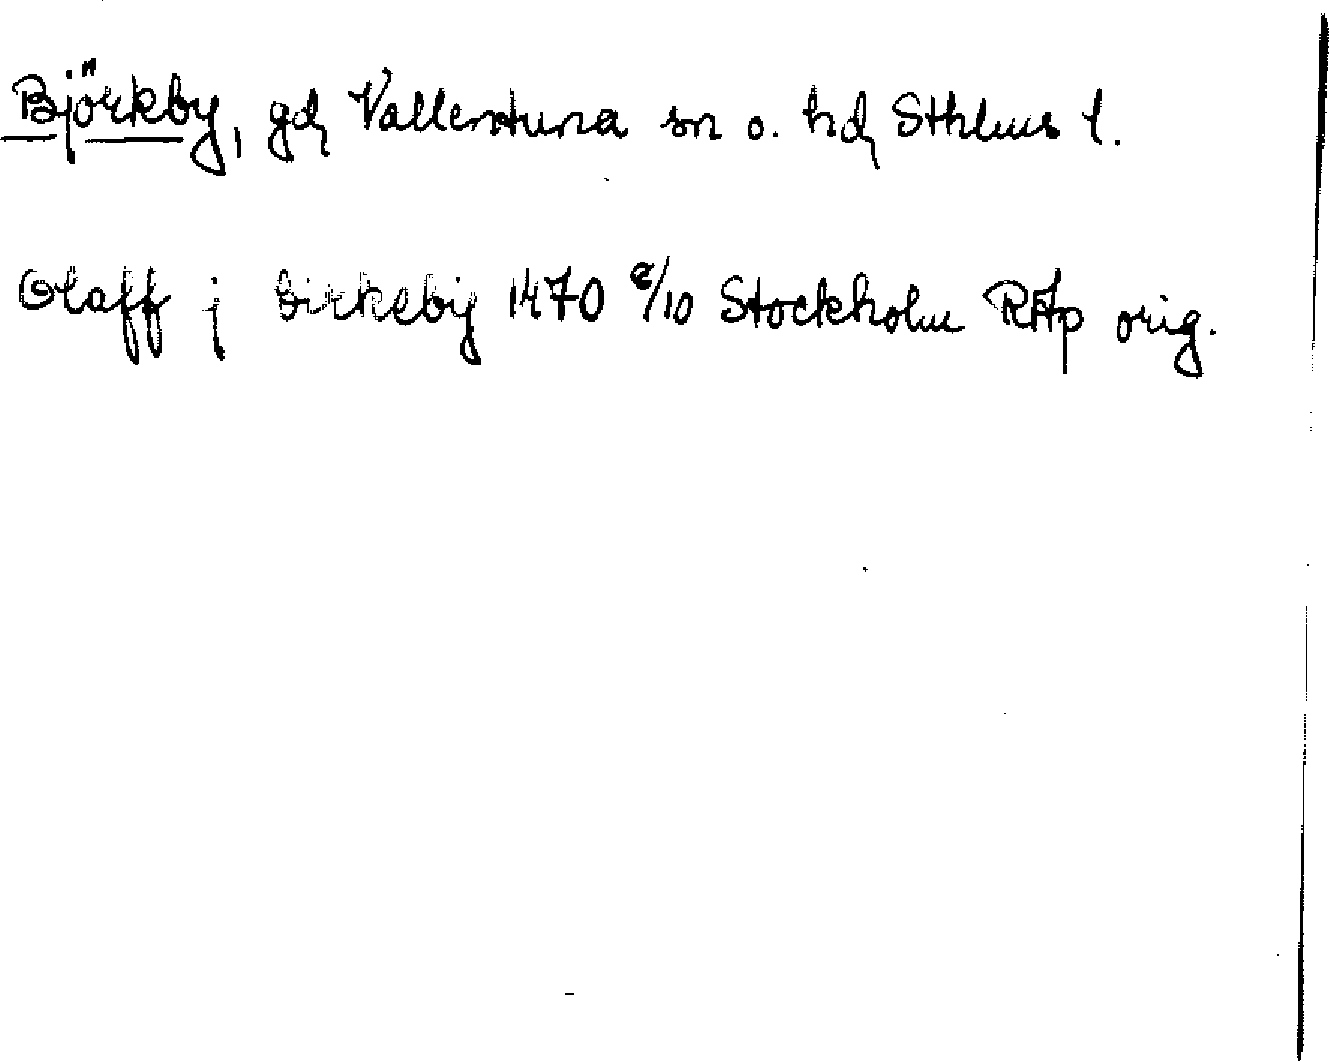 Björkby, gd, Vallentuna sn o. hd, Sthlms l.
Olaff j birkeby 1470 8/10 Stockholm RAp orig.